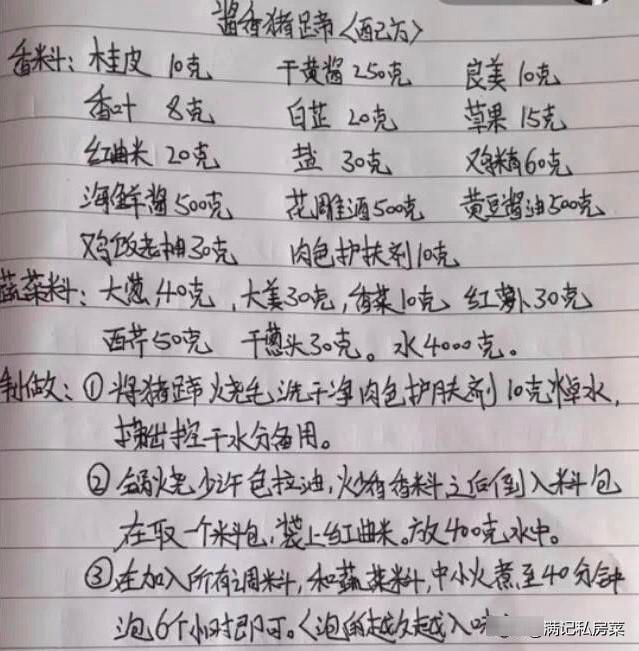 酱香猪蹄〈配方〉
香料：木桂皮 10克 干黄酱250克 良美 10克
香叶 8克 白芷 20克 草果 15克
红曲米 20克 盐 30克 鸡精60克
海鲜酱500克 花雕酒500克 黄豆酱油500克
鸡饭老抽30克 肉色护扶剂10克
蔬菜料：大葱40克，大美30克，香菜10克 红萝卜30克
西芹50克 干葱头30克。水4000克。
制做：①将猪蹄烧毛洗干净肉色护肤剂10克焯水，
捞出控干水分备用。
②锅烧少许色拉油，火炒香香料之后倒入料包
在取一个料包，袋上红曲米。放400克水中。
③在加入所有调料，和蔬菜料，中小火煮至40分钟
泡6个小时即可。〈泡的越久越入味
满记私房菜